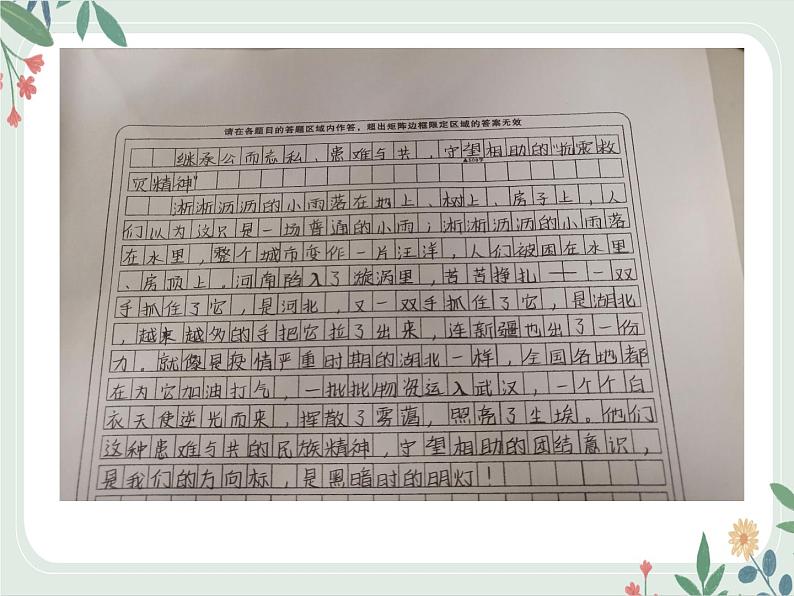 请在各题目的答题区域内作答，超出矩阵边框限定区域的答案无效
继承公而忘私、患难与共，守望相助的“抗震救
灾精神”
淅淅沥沥的小雨落在地上、树上、房子上，人
们以为这只是一场普通的小雨；淅淅沥沥的小雨落
在水里，整个城市变作一片汪洋，人们被困在水里
、房顶上。河南陷入了漩涡里，苦苦挣扎——一双
手抓住了它，是河北，又一双手抓住了它，是湖北
，越来越多的手把它拉了出来，连新疆也出了一份
力。就像是疫情严重时期的湖北一样，全国各地都
在为它加油打气，一批批物资运入武汉，一个个白
衣天使逆光而来，挥散了雾蔼，照亮了尘埃。他们
这种患难与共的民族精神，守望相助的团结意识，
是我们的方向标，是黑暗时的明灯！